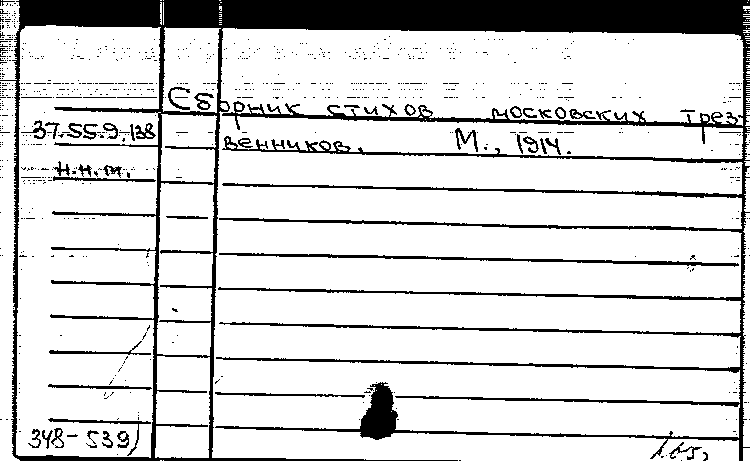 Сборник стихов московских трез-
37.55.9.138 венников. М., 1914.
н.н.м.
348-539